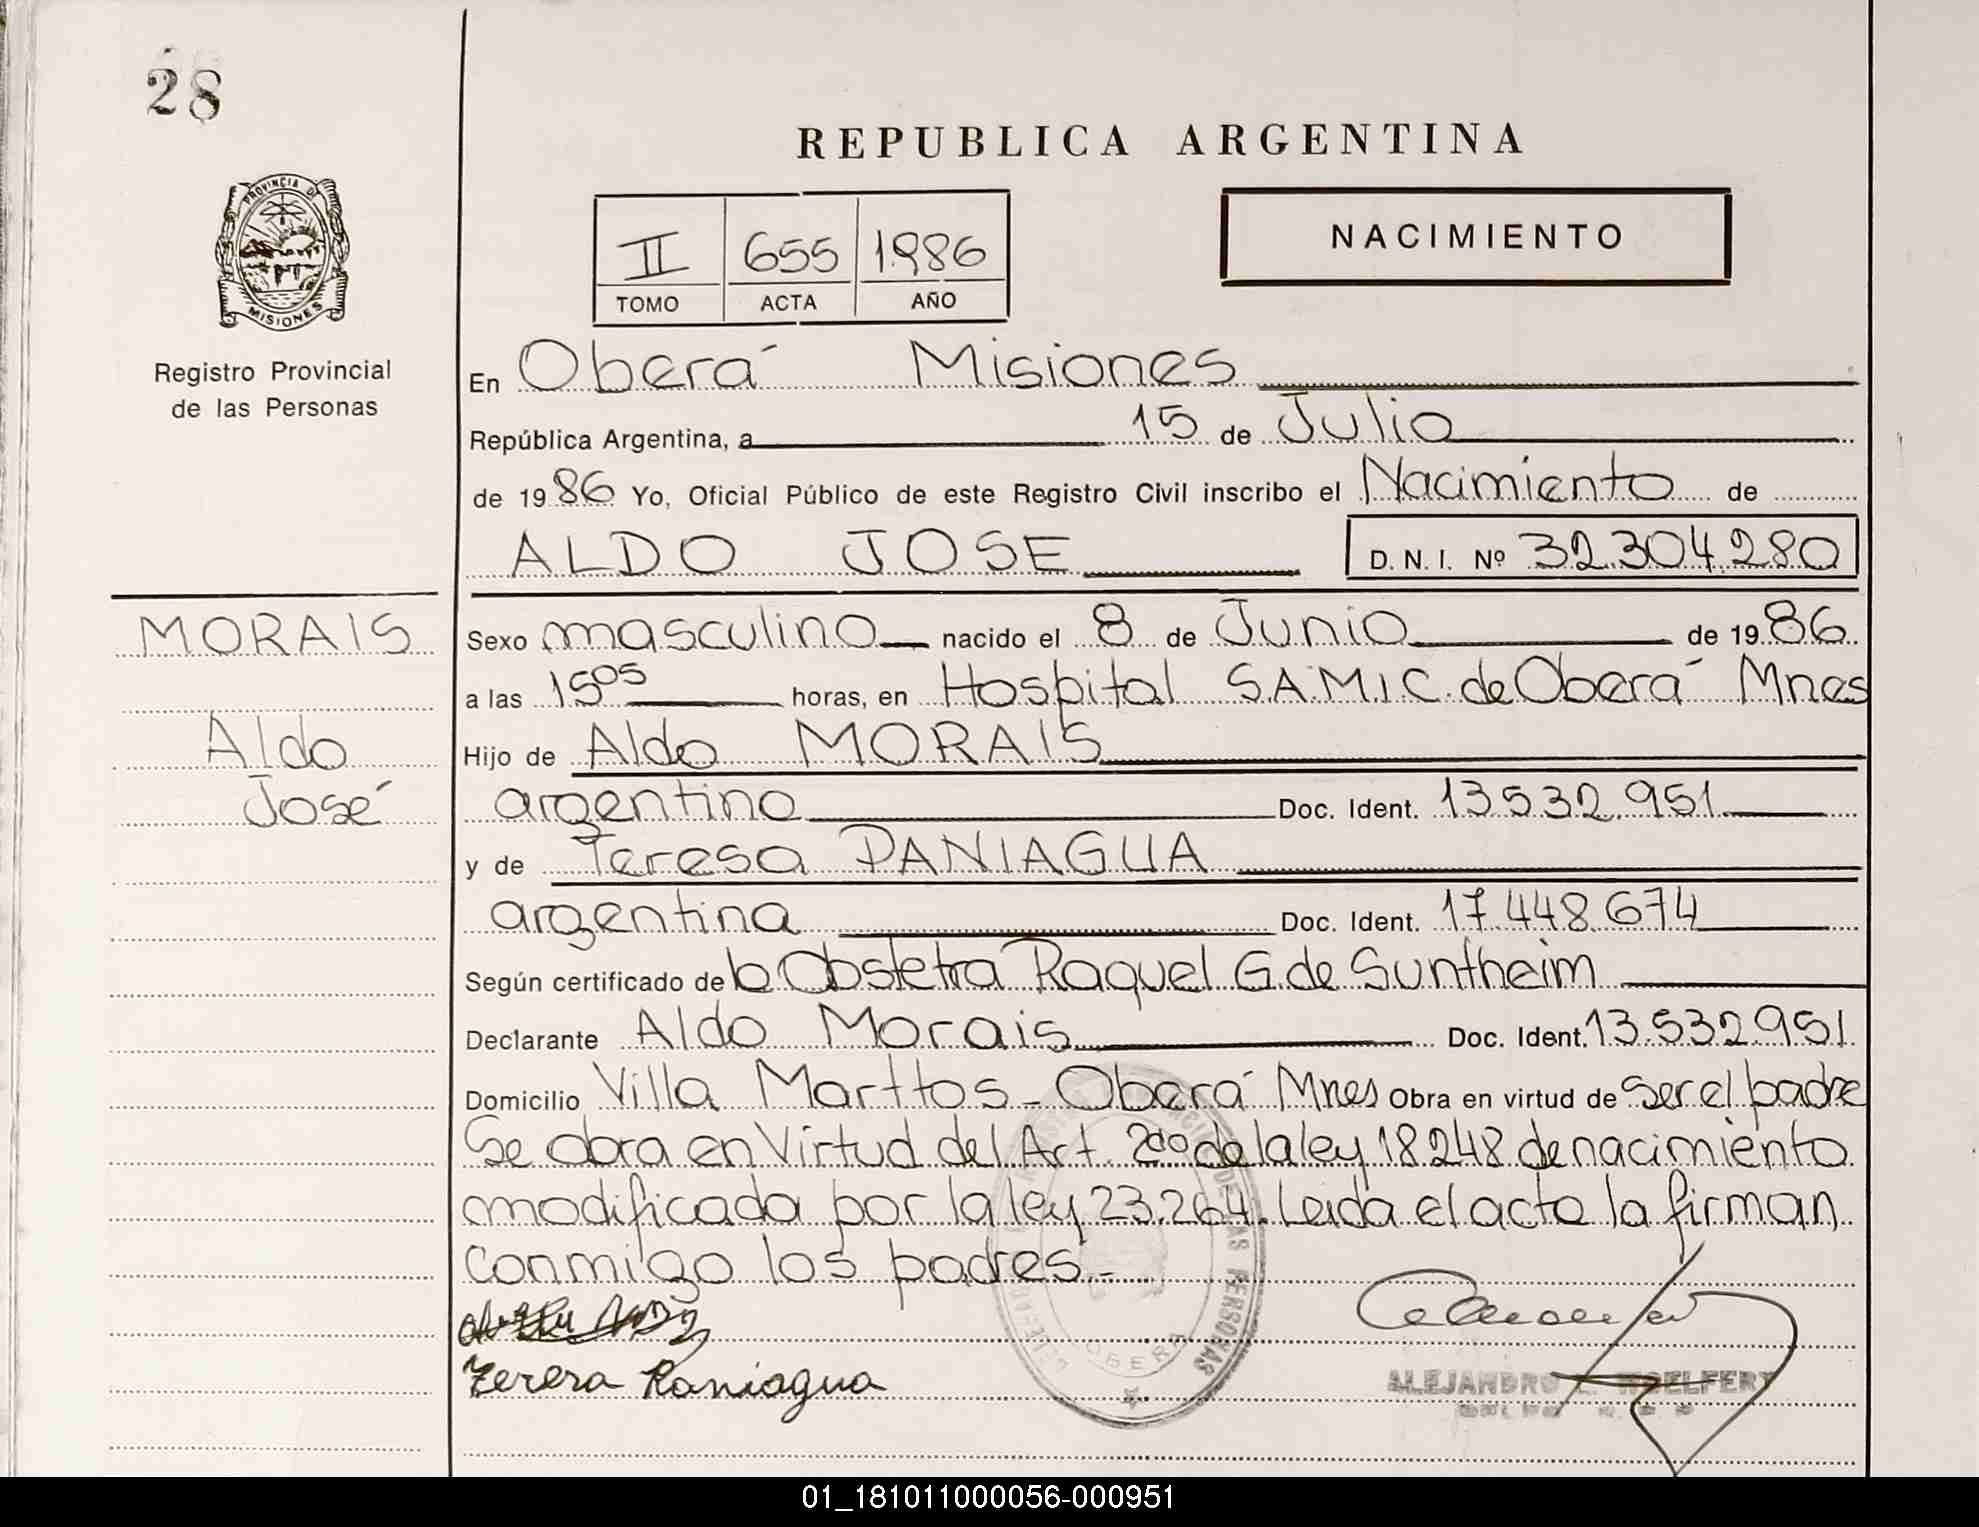 28
REPUBLICA ARGENTINA
PROVINCIA DE
MISIONES
Registro Provincial
de las Personas
II 655 1986
TOMO ACTA AÑO
NACIMIENTO
En Oberá Misiones
República Argentina, a 15 de Julio
de 1986 Yo, Oficial Público de este Registro Civil inscribo el Nacimiento de
ALDO JOSE D. N. I. Nº 32.304.280
MORAIS
Aldo
José
Sexo masculino nacido el 8 de Junio de 1986
a las 15 05 horas, en Hospital S.A.M.I.C. de Oberá Mnes
Hijo de Aldo MORAIS
argentino Doc. Ident. 13.532.951
y de Teresa PANIAGUA
argentina Doc. Ident. 17.448.674
Según certificado de la Obstetra Raquel G. de Suntheim
Declarante Aldo Morais Doc. Ident. 13.532.951
Domicilio Villa Marttos - Oberá Mnes Obra en virtud de ser el padre
Se obra en Virtud del Art. 2do de la ley 18248 de nacimiento
modificada por la ley 23.264. Leida el acta la firman
conmigo los padres.-
Teresa Paniagua
DE LAS PERSONAS
OBERA
ALEJANDRO WOELFERT
01_181011000056-000951